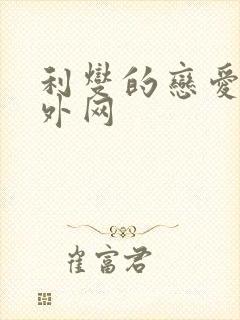 利燮的戀愛
外网
崔富君